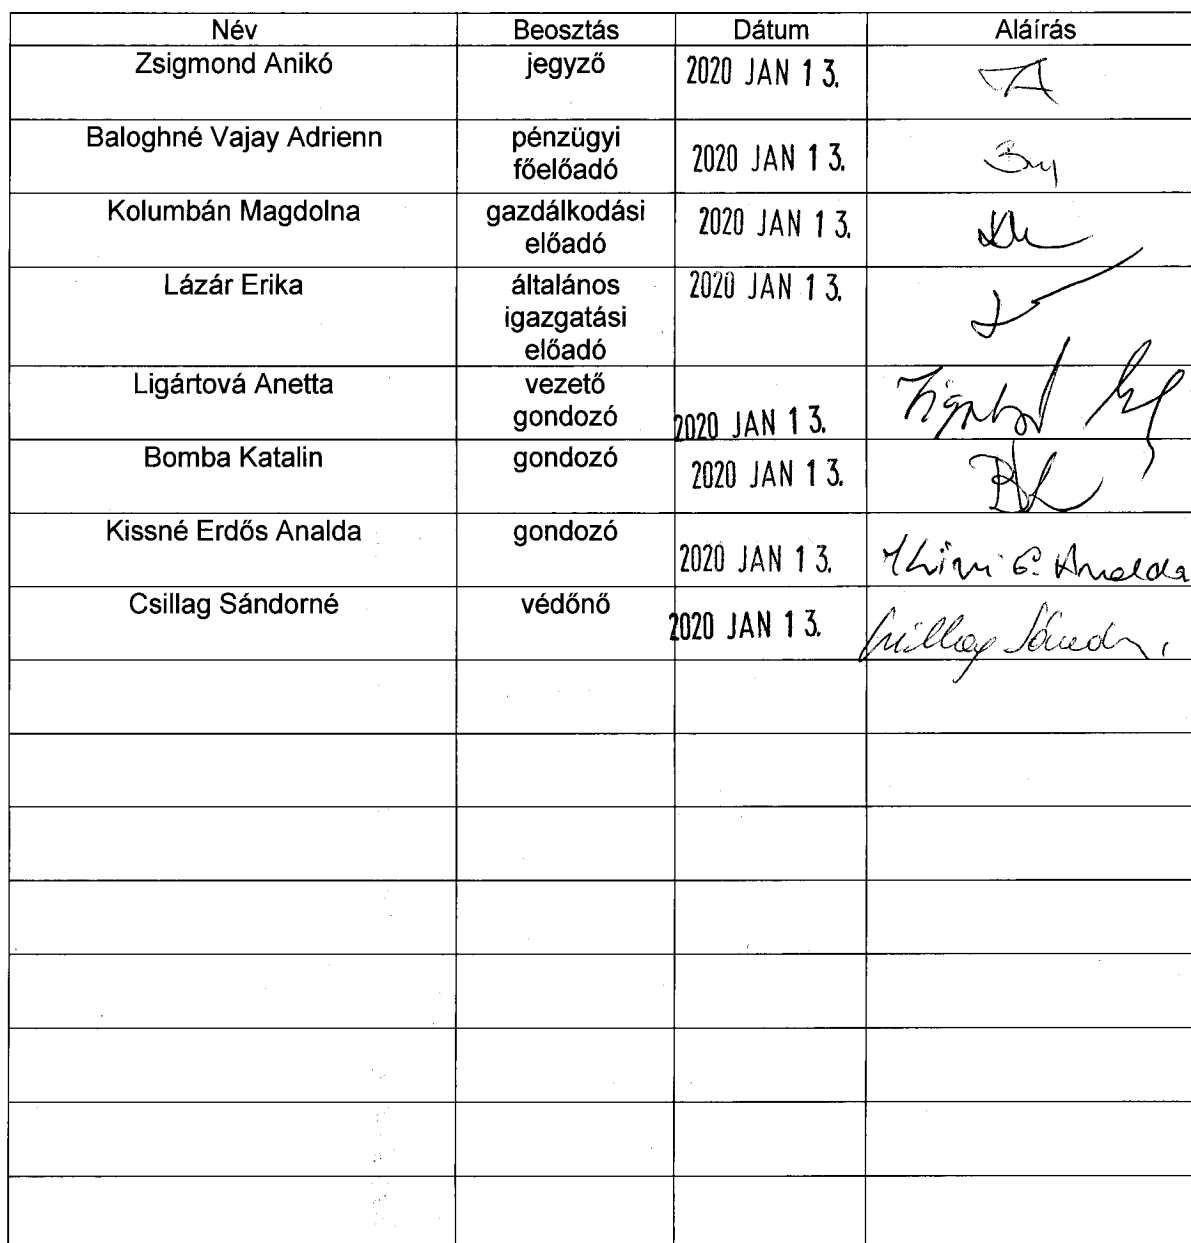 Név Beosztás Dátum Aláírás
Zsigmond Anikó jegyző 2020 JAN 13.
Baloghné Vajay Adrienn pénzügyi
főelőadó 2020 JAN 13.
Kolumbán Magdolna gazdálkodási
előadó 2020 JAN 13.
Lázár Erika általános 2020 JAN 13.
igazgatási
előadó
Ligártová Anetta vezető
gondozó 2020 JAN 13.
Bomba Katalin gondozó 2020 JAN 13.
Kissné Erdős Analda gondozó
2020 JAN 13. Analda
Csillag Sándorné védőnő 2020 JAN 13.